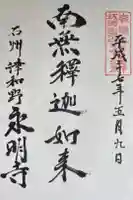 平成 年五月九日
南無釋迦如来
石州津和野永明寺